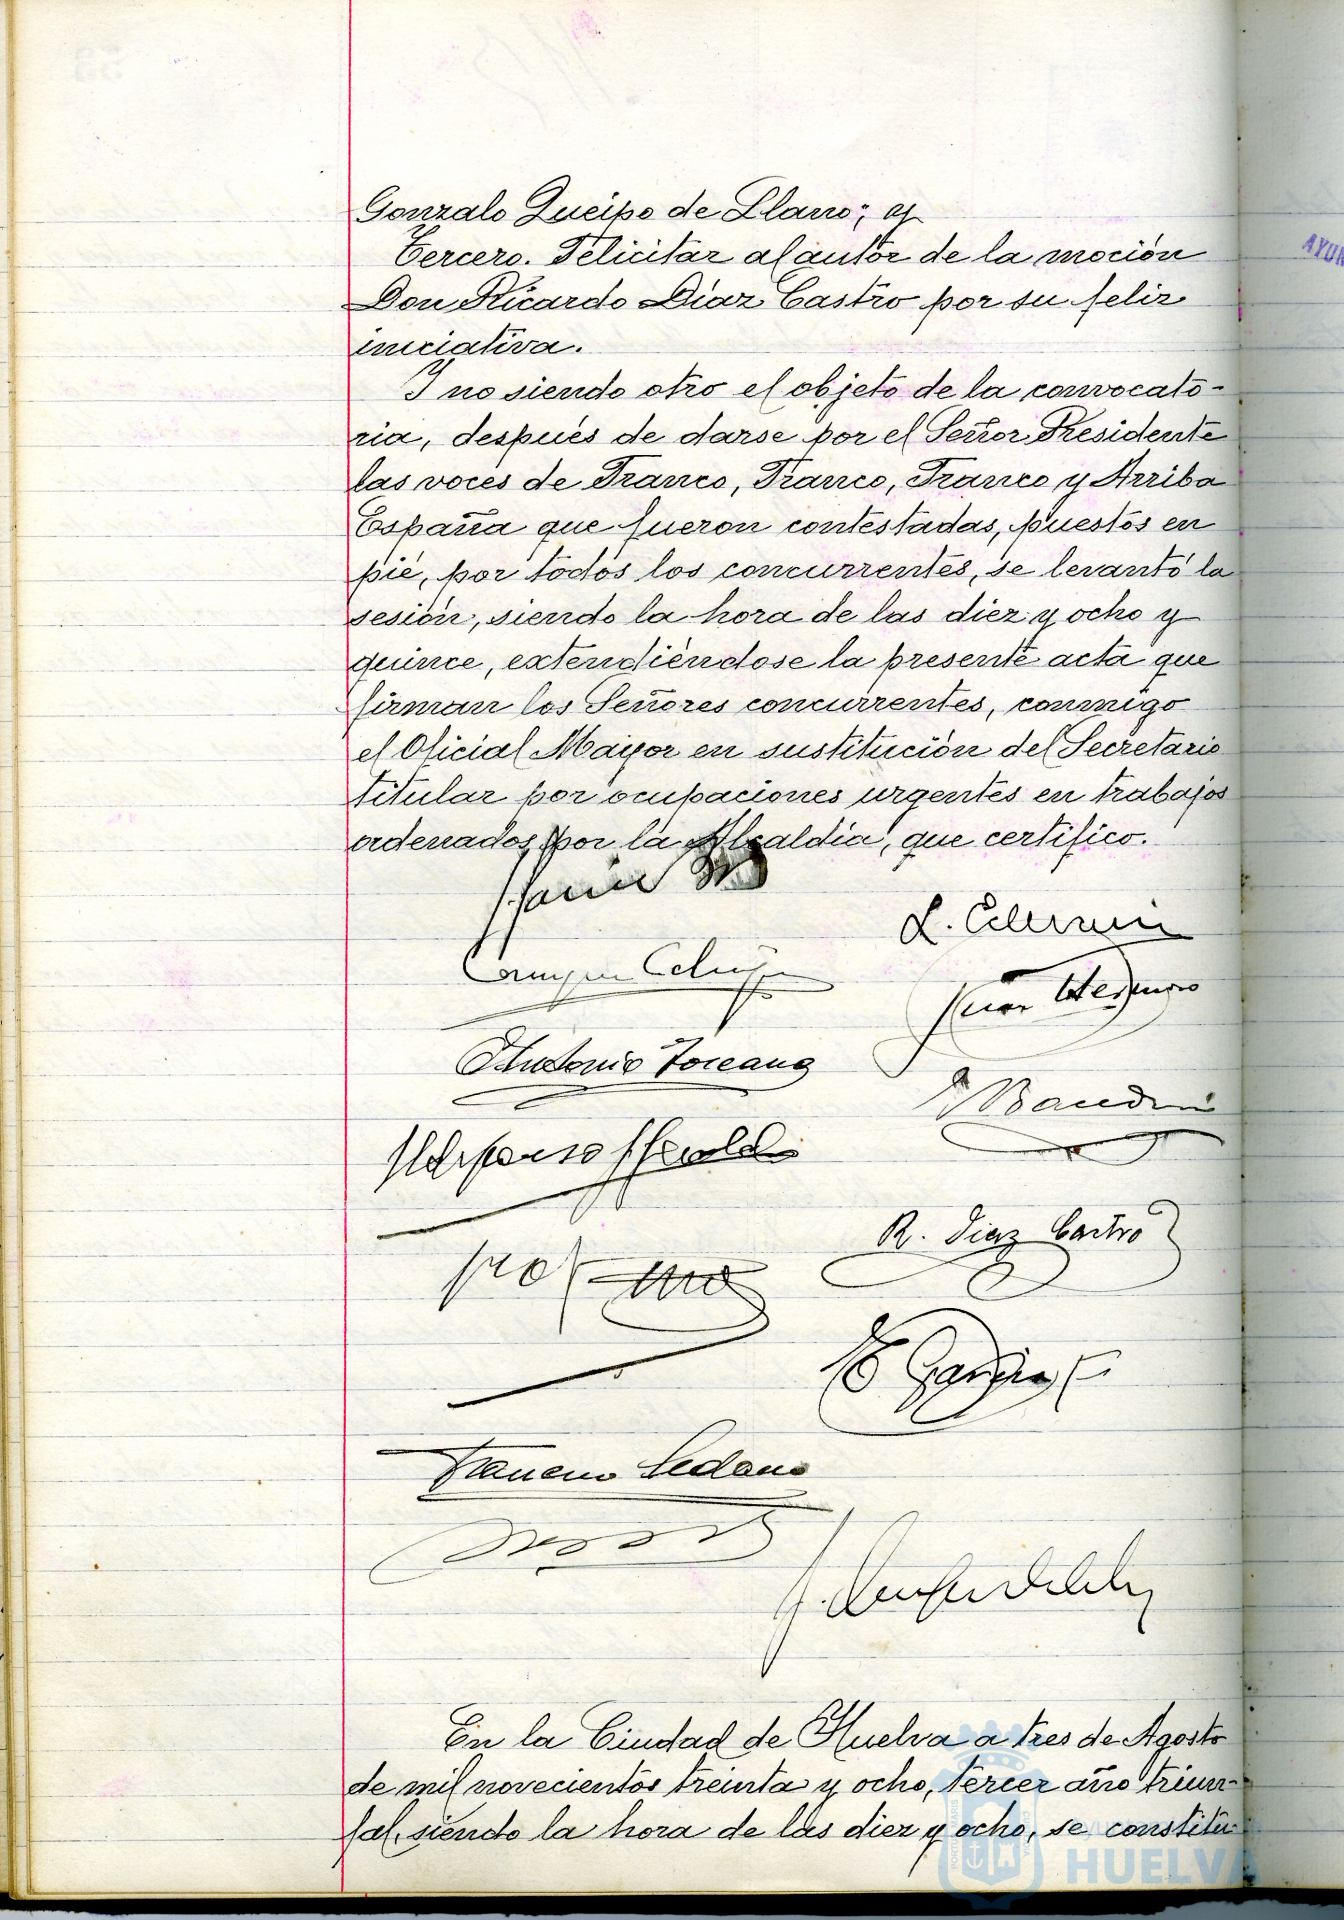 Gonzalo Queipo de Llano; y
Tercero. Felicitar al autor de la moción
Don Ricardo Díaz Castro por su feliz
iniciativa.
Y no siendo otro el objeto de la convocato-
ria, después de darse por el Señor Presidente
las voces de Franco, Franco, Franco y Arriba
España que fueron contestadas, puestos en
pié, por todos los concurrentes, se levantó la
sesión, siendo la hora de las diez y ocho y
quince, extendiéndose la presente acta que
firman los Señores concurrentes, conmigo
el Oficial Mayor en sustitución del Secretario
titular por ocupaciones urgentes en trabajos
ordenados por la Alcaldía, que certifico.
Antonio Toscano
Ildefonso
R. Diaz Castro
E García
Francisco Sedano
En la Ciudad de Huelva a tres de Agosto
de mil novecientos treinta y ocho, tercer año triun-
fal, siendo la hora de las diez y ocho, se constitu-
HUELVA